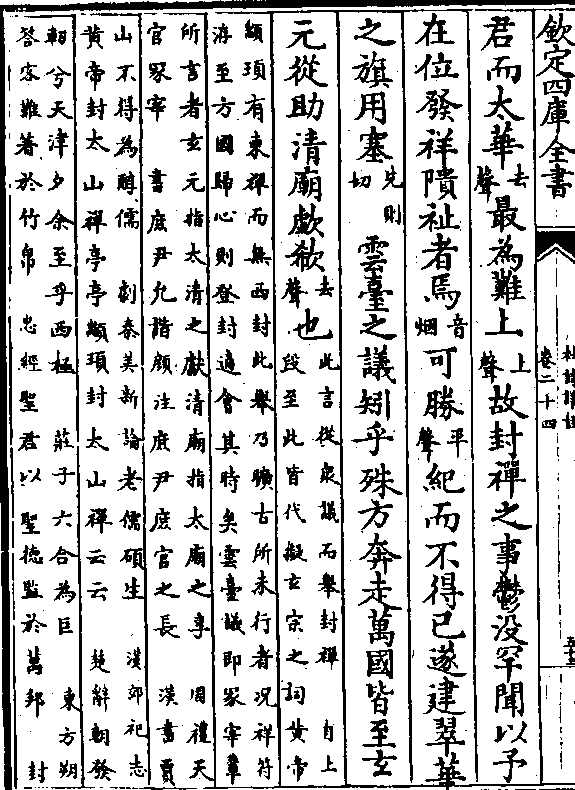 欽定四庫全書
杜詩詳註
卷二十四
五十三
君而太華去聲最為難上上聲故封禪之事鬱没罕聞以予
在位發祥隤祉者焉音烟可勝平聲紀而不得已遂建翠華
之旗用塞先則切雲臺之議矧乎殊方奔走萬國皆至玄
元從助清廟歔欷去聲也
此言從衆議而舉封禪 自上
段至此皆代擬玄宗之詞黄帝
顓頊有東禪而無西封此舉乃曠古所未行者况祥符
洊至方國歸心則登封適會其時矣雲臺議即冢宰羣
所言者玄元指太清之獻清廟指太廟之享 周禮天
官冢宰 書庶尹允諧顔注庶尹庶官之長 漢書賈
山不得為醇儒 劇秦美新論老儒碩生 漢郊祀志
黄帝封太山禪亭亭顓頊封太山禪云云 楚辭朝發
軔兮天津夕余至乎西極 莊子六合為巨 東方朔
答客難著於竹帛 忠經聖君以聖德監於萬邦 封